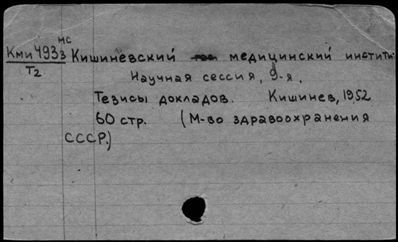 нс
Кми 4933 Кишиневский медицинский институ
Т2
Научная сессия, 9-я.
Тезисы докладов. Кишинев, 1952
60 стр. (М-во здравоохранения
СССР.)